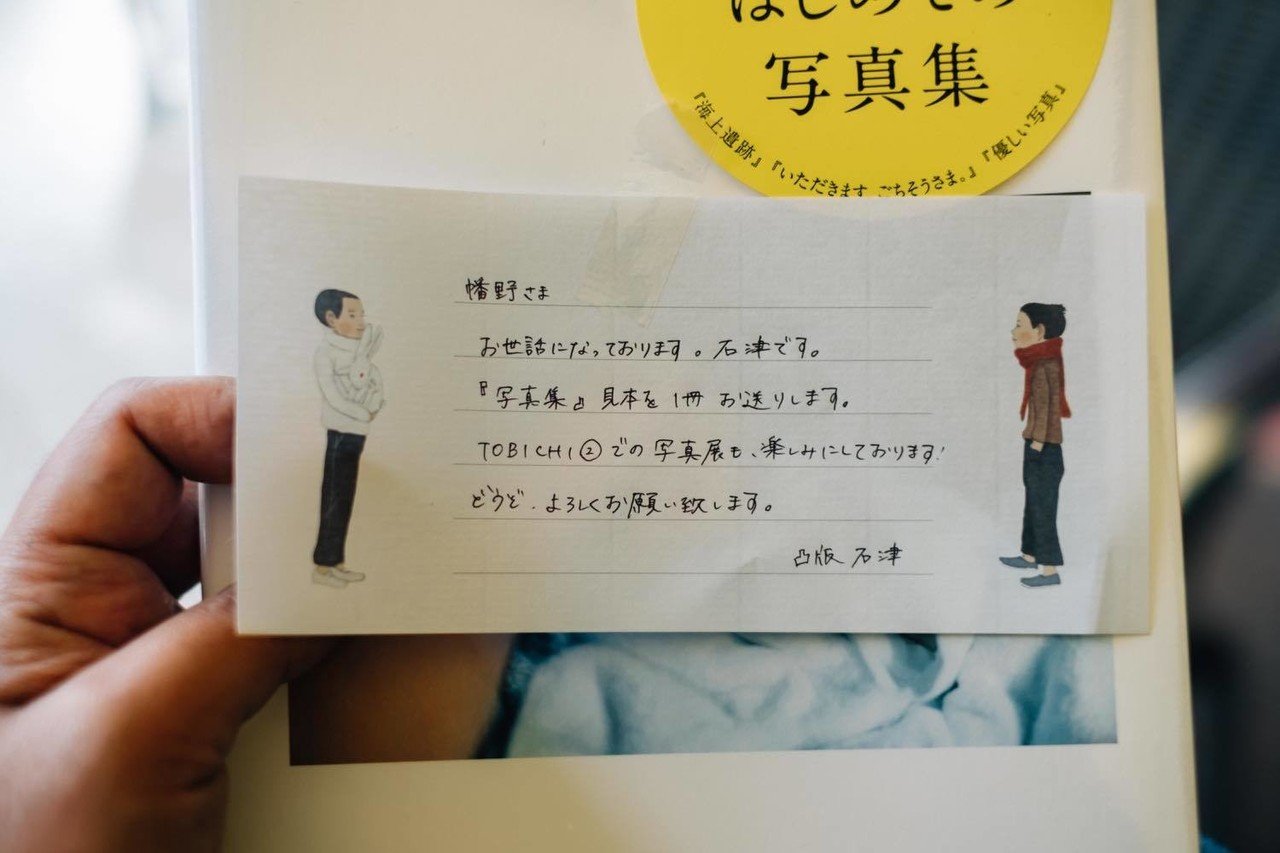 はじめての
写真集
『海上遺跡』『いただきます、ごちそうさま。』『優しい写真』
幡野さま
お世話になっております。石津です。
『写真集』見本を1冊お送りします。
TOBICHI②での写真展も、楽しみにしております!
どうぞ、よろしくお願い致します。
凸版 石津